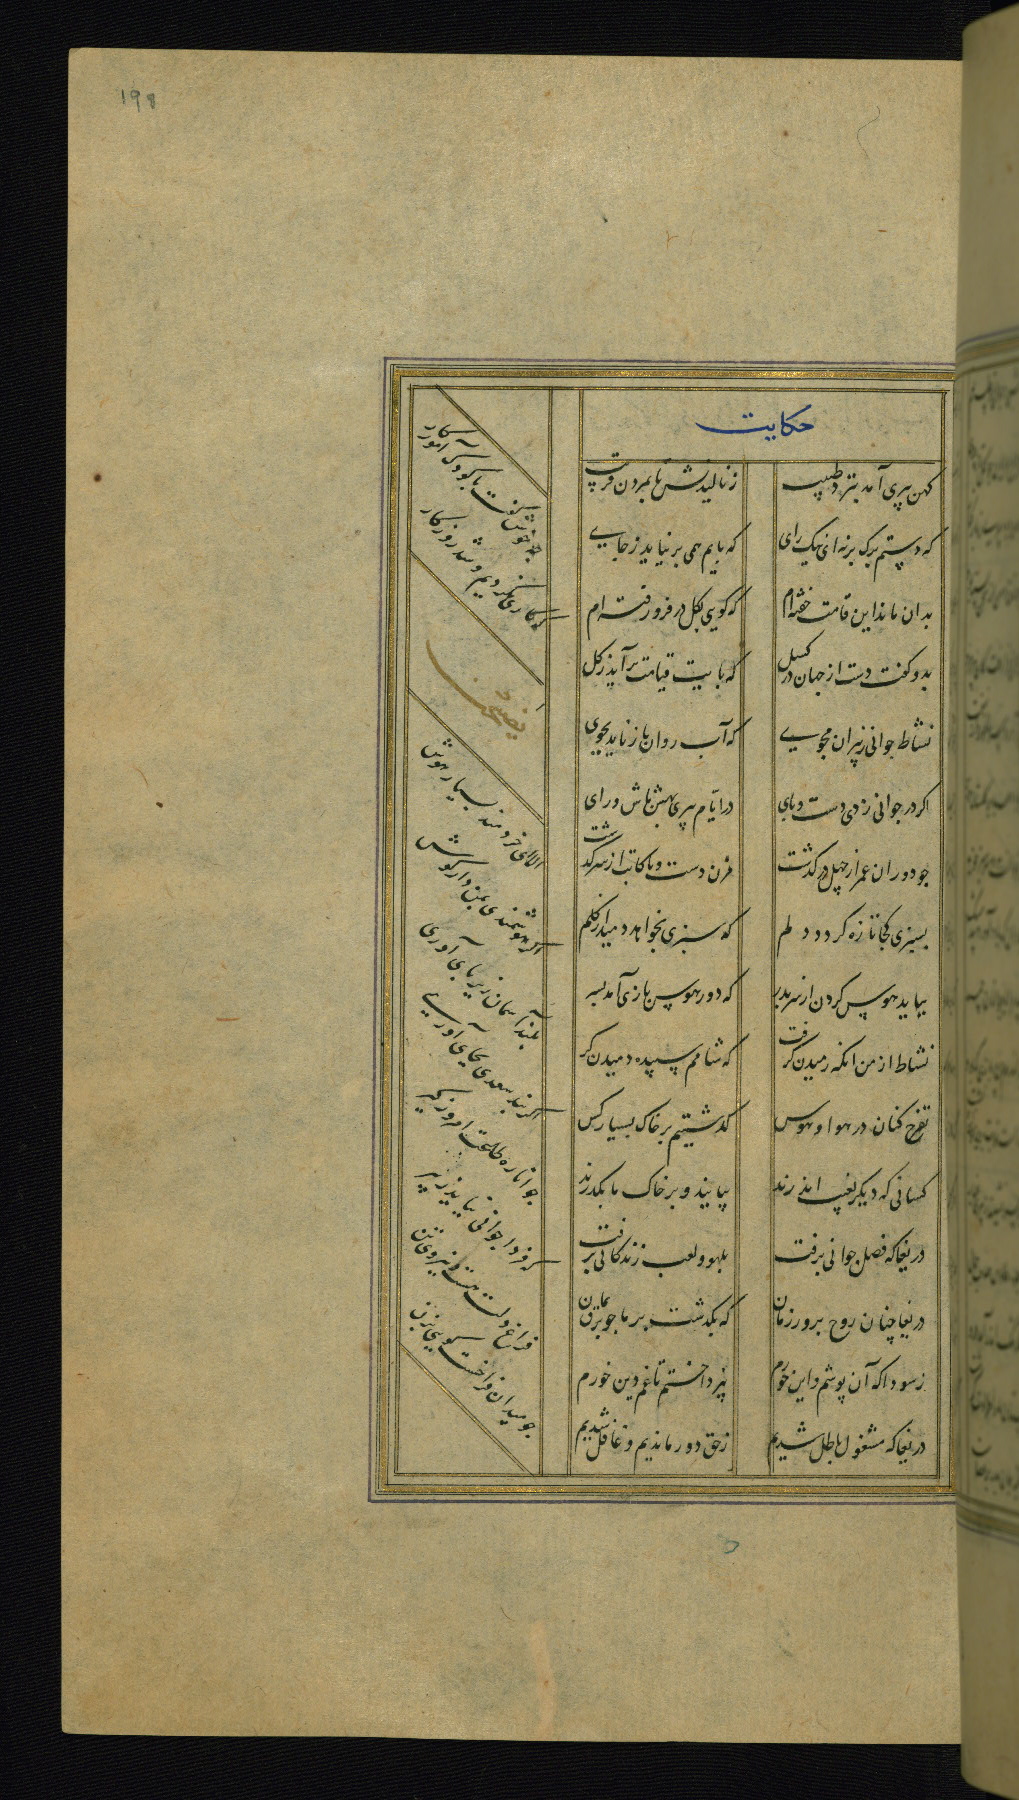 198
حکایت
کهن پیری آمد بنزد طبیب ز نالیدنش تا بمردن قریب
که دستم برگ برنه ای نیک رای که پایم همی بر نیاید ز جای
بدان ماند این قامت خفته‌ام که گویی بگل در فرو رفته‌ام
بدو گفت دست از جهان در گسل که پایت قیامت برآید ز گل
نشاط جوانی ز پیران مجوی که آب روان باز ناید بجوی
اگر در جوانی زدی دست و پای در ایام پیری بهش باش و رای
چو دوران عمر از چهل در گذشت مزن دست و پا کآبت از سر گذشت
بسبزی کجا تازه گردد دلم که سبزی بخواهد دمید از گلم
بباید هوس کردن از سر بدر که دور هوس بازی آمد بسر
نشاط از من آنگه رمیدن گرفت که شامم سپیده دمیدن گرفت
تفرج کنان در هوا و هوس گذشتیم بر خاک بسیار کس
کسانی که دیگر بغیب اندرند بیایند و بر خاک ما بگذرند
دریغا که فصل جوانی برفت بلهو و لعب زندگانی برفت
دریغا چنان روح پرور زمان که بگذشت بر ما چو برق یمان
ز سودا که آن پوشم و این خورم نپرداختم تا غم دین خورم
دریغا که مشغول باطل شدیم ز حق دور ماندیم و غافل شدیم
چه خوش گفت با کودک آموزگار
که کاری نکردیم و شد روزگار
الا ای خردمند بسیار هوش
اگر هوشمندی بمن دار گوش
بلند آسمان زیر پای آوری
اگر پند سعدی بجای آوری
جوانا ره طاعت امروز گیر
که فردا جوانی نیاید ز پیر
فراغ دلت هست و نیروی تن
چو میدان فراخست گویی بزن